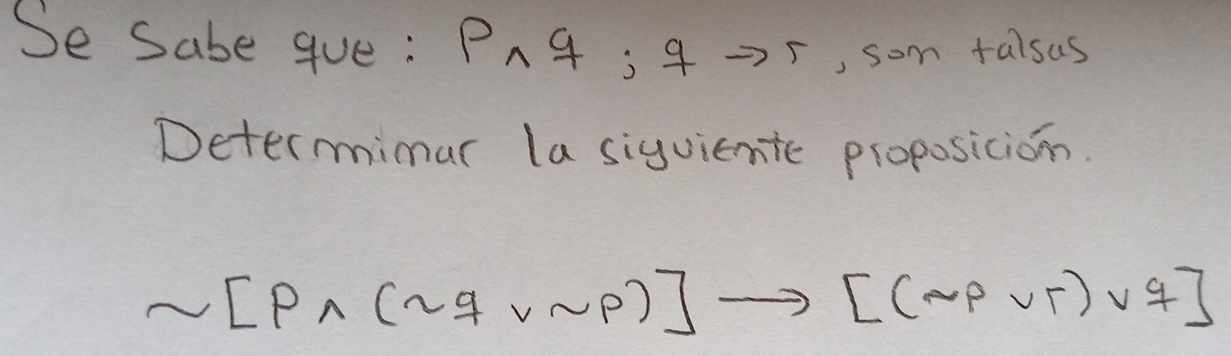 Se Sabe que : P ∧ q ; q → r , son falsas
Determinar la siguiente proposición.
~ [ P ∧ ( ~ q ∨ ~ p ) ] → [ ( ~ p ∨ r ) ∨ q ]